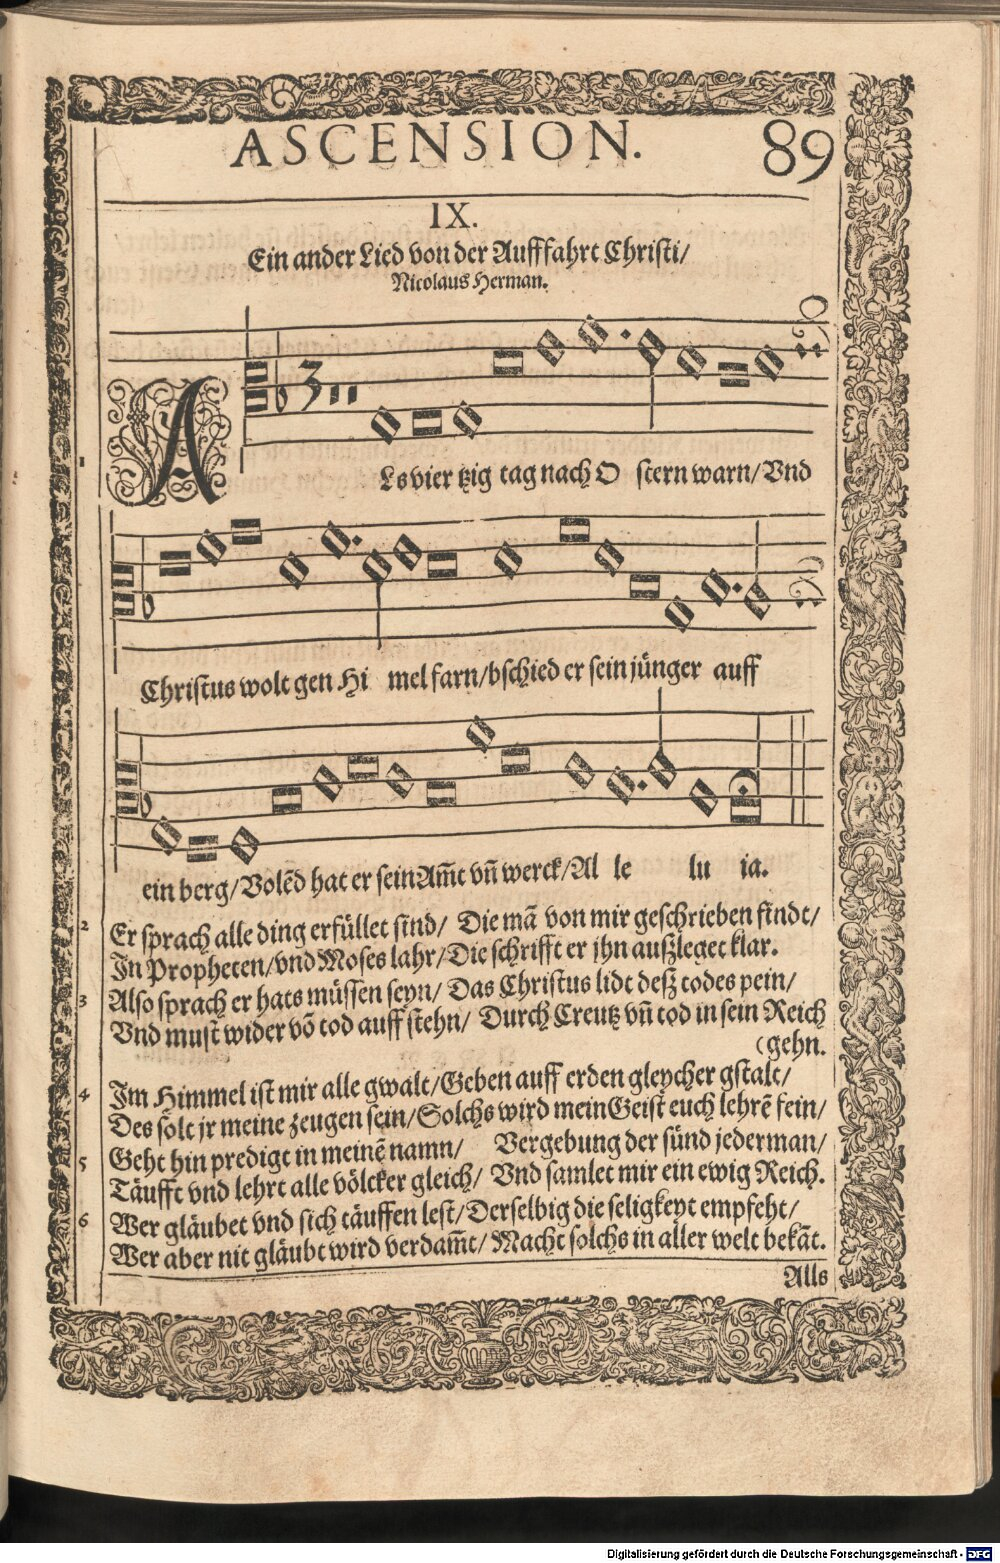 ASCENSION. 89
IX.
Ein ander Lied von der Auffahrt Christi/
Nicolaus Herman.
1 ALs vier tzig tag nach O stern warn/ Vnd
Christus wolt gen Hi mel farn/ bschied er sein jünger auff
ein berg/ Volēd hat er sein Am̃t vn̄ werck/ Al le lu ia.
2 Er sprach alle ding erfüllet sind/ Die mā von mir geschrieben findt/
In Propheten/ vnd Moses lahr/ Die schrifft er jhn außleget klar.
3 Also sprach er hats müssen seyn/ Das Christus lidt deß todes pein/
Vnd must wider vō tod auff stehn/ Durch Creutz vn̄ tod in sein Reich
(gehn.
4 Im Himmel ist mir alle gwalt/ Geben auff erden gleycher gstalt/
Des solt jr meine zeugen sein/ Solchs wird mein Geist euch lehrē fein/
5 Geht hin predigt in meinē namn/ Vergebung der sünd jederman/
Täufft vnd lehrt alle völcker gleich/ Vnd samlet mir ein ewig Reich.
6 Wer gläubet vnd sich täuffen lest/ Derselbig die seligkeyt empfeht/
Wer aber nit gläubt wird verdam̃t/ Macht solchs in aller welt bekāt.
Alls
Digitalisierung gefördert durch die Deutsche Forschungsgemeinschaft - DFG